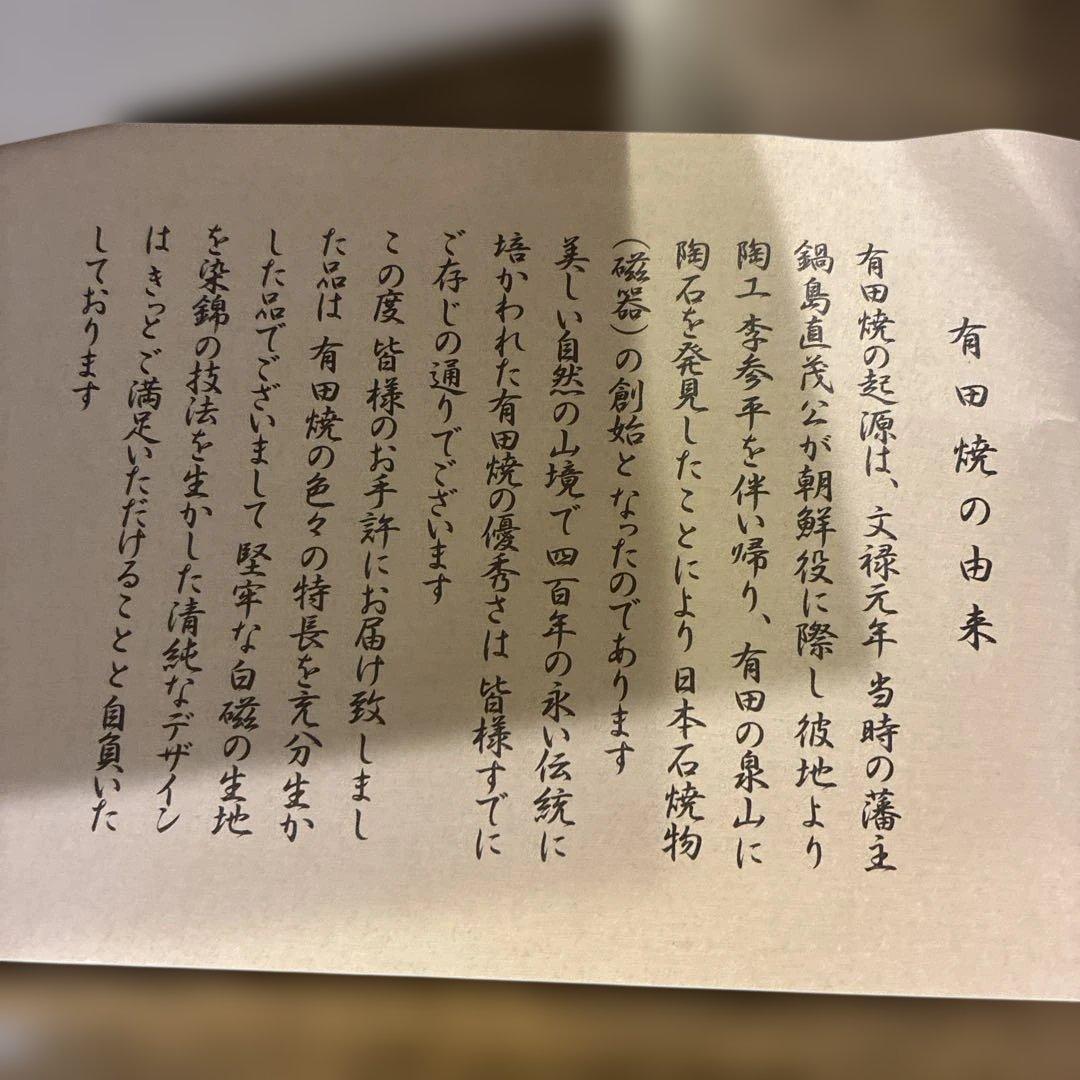 有田焼の由来
有田焼の起源は、文禄元年 当時の藩主
鍋島直茂公が朝鮮役に際し彼地より
陶工 李参平を伴い帰り、有田の泉山に
陶石を発見したことにより 日本石焼物
(磁器)の創始となったのであります
美しい自然の山境で四百年の永い伝統に
培かわれた有田焼の優秀さは 皆様すでに
ご存じの通りでございます
この度 皆様のお手許にお届け致しまし
た品は 有田焼の色々の特長を充分生か
した品でございまして 堅牢な白磁の生地
を染錦の技法を生かした清純なデザイン
は きっとご満足いただけることと自負いた
しております